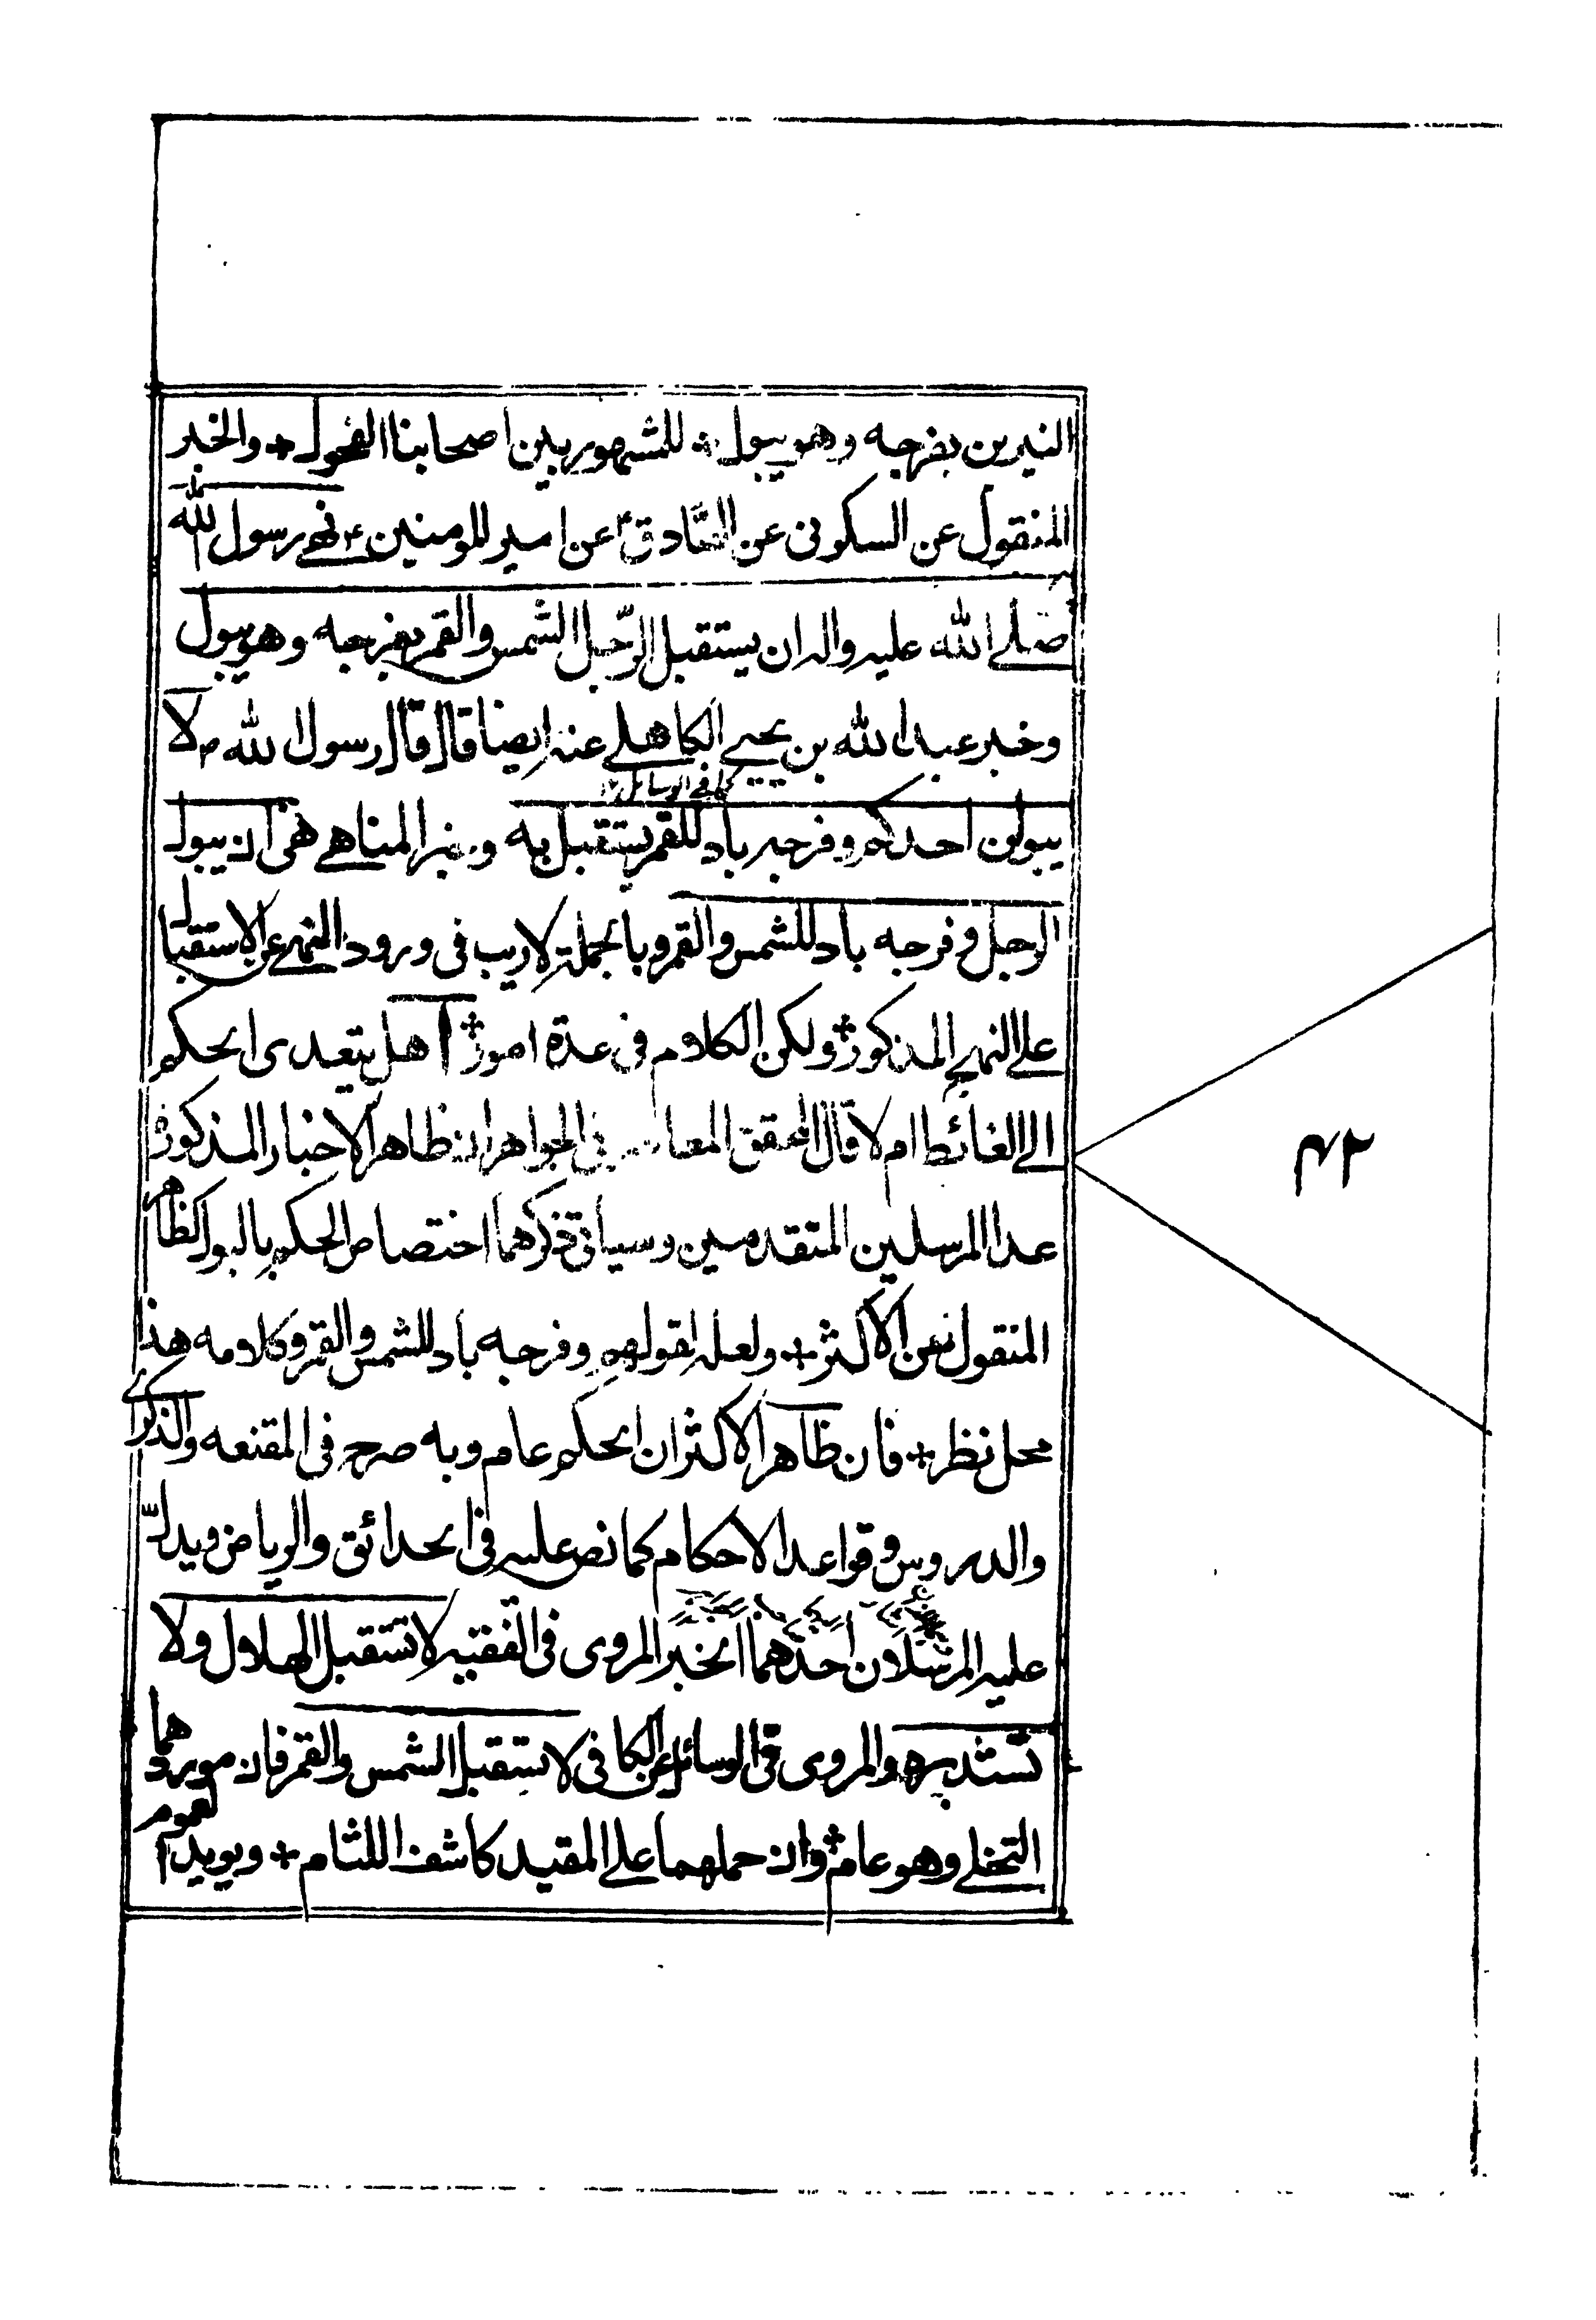 النيرين بفرجه وهو يبول ÷ للمشهور بين اصحابنا الفحول + والخبر
المنقول عن السكونى عن الصّادق ؑ عن امير المومنين ؑ نهى رسول الله
صلى الله عليه واله ان يستقبل الرّجل الشمس والقمر بفرجه وهو يبول
وخبر عبد الله بن يحيى الكاهلى عنه ايضا قال قال رسول الله ص لا
كما فى الوسائل ١٢
يبولن احدكم وفرجه باد للقمر يستقبل به وخبر المناهى نهى ان يبول
الرجل وفرجه باد للشمس والقمر وبالجملة لا ريب فى ورود النهى عن الاستقبال
على النهى المذكور + ولكن الكلام فى عدة امور + آ هل يتعدى الحكم
الى الغائط ام لا قال المحقق المعاصر فى الجواهر ان ظاهر الاخبار المذكورة
عدا المرسلين المتقدمين وسياتى ذكرهما اختصاص الحكم بالبول كظاهر
المنقول عن الاكثر + ولعله لقولهم وفرجه باد للشمس والقمر وكلامه هذا
محل نظر + فان ظاهر الاكثر ان الحكم عام وبه صرح فى المقنعه والذكرى
والدروس وقواعد الاحكام كما نص عليه فى الحدائق والرياض ويدلّ
عليه المرسلان احدهما الخبر المروى فى الفقيه لا تستقبل الهلال ولا
تستدبره والمروى فى الوسائل عن الكافى لا تستقبل الشمس والقمر فان موردهما
التخلى وهو عام + وان حملهما على المقيد كاشف اللثام + ويويد العموم
٤٢